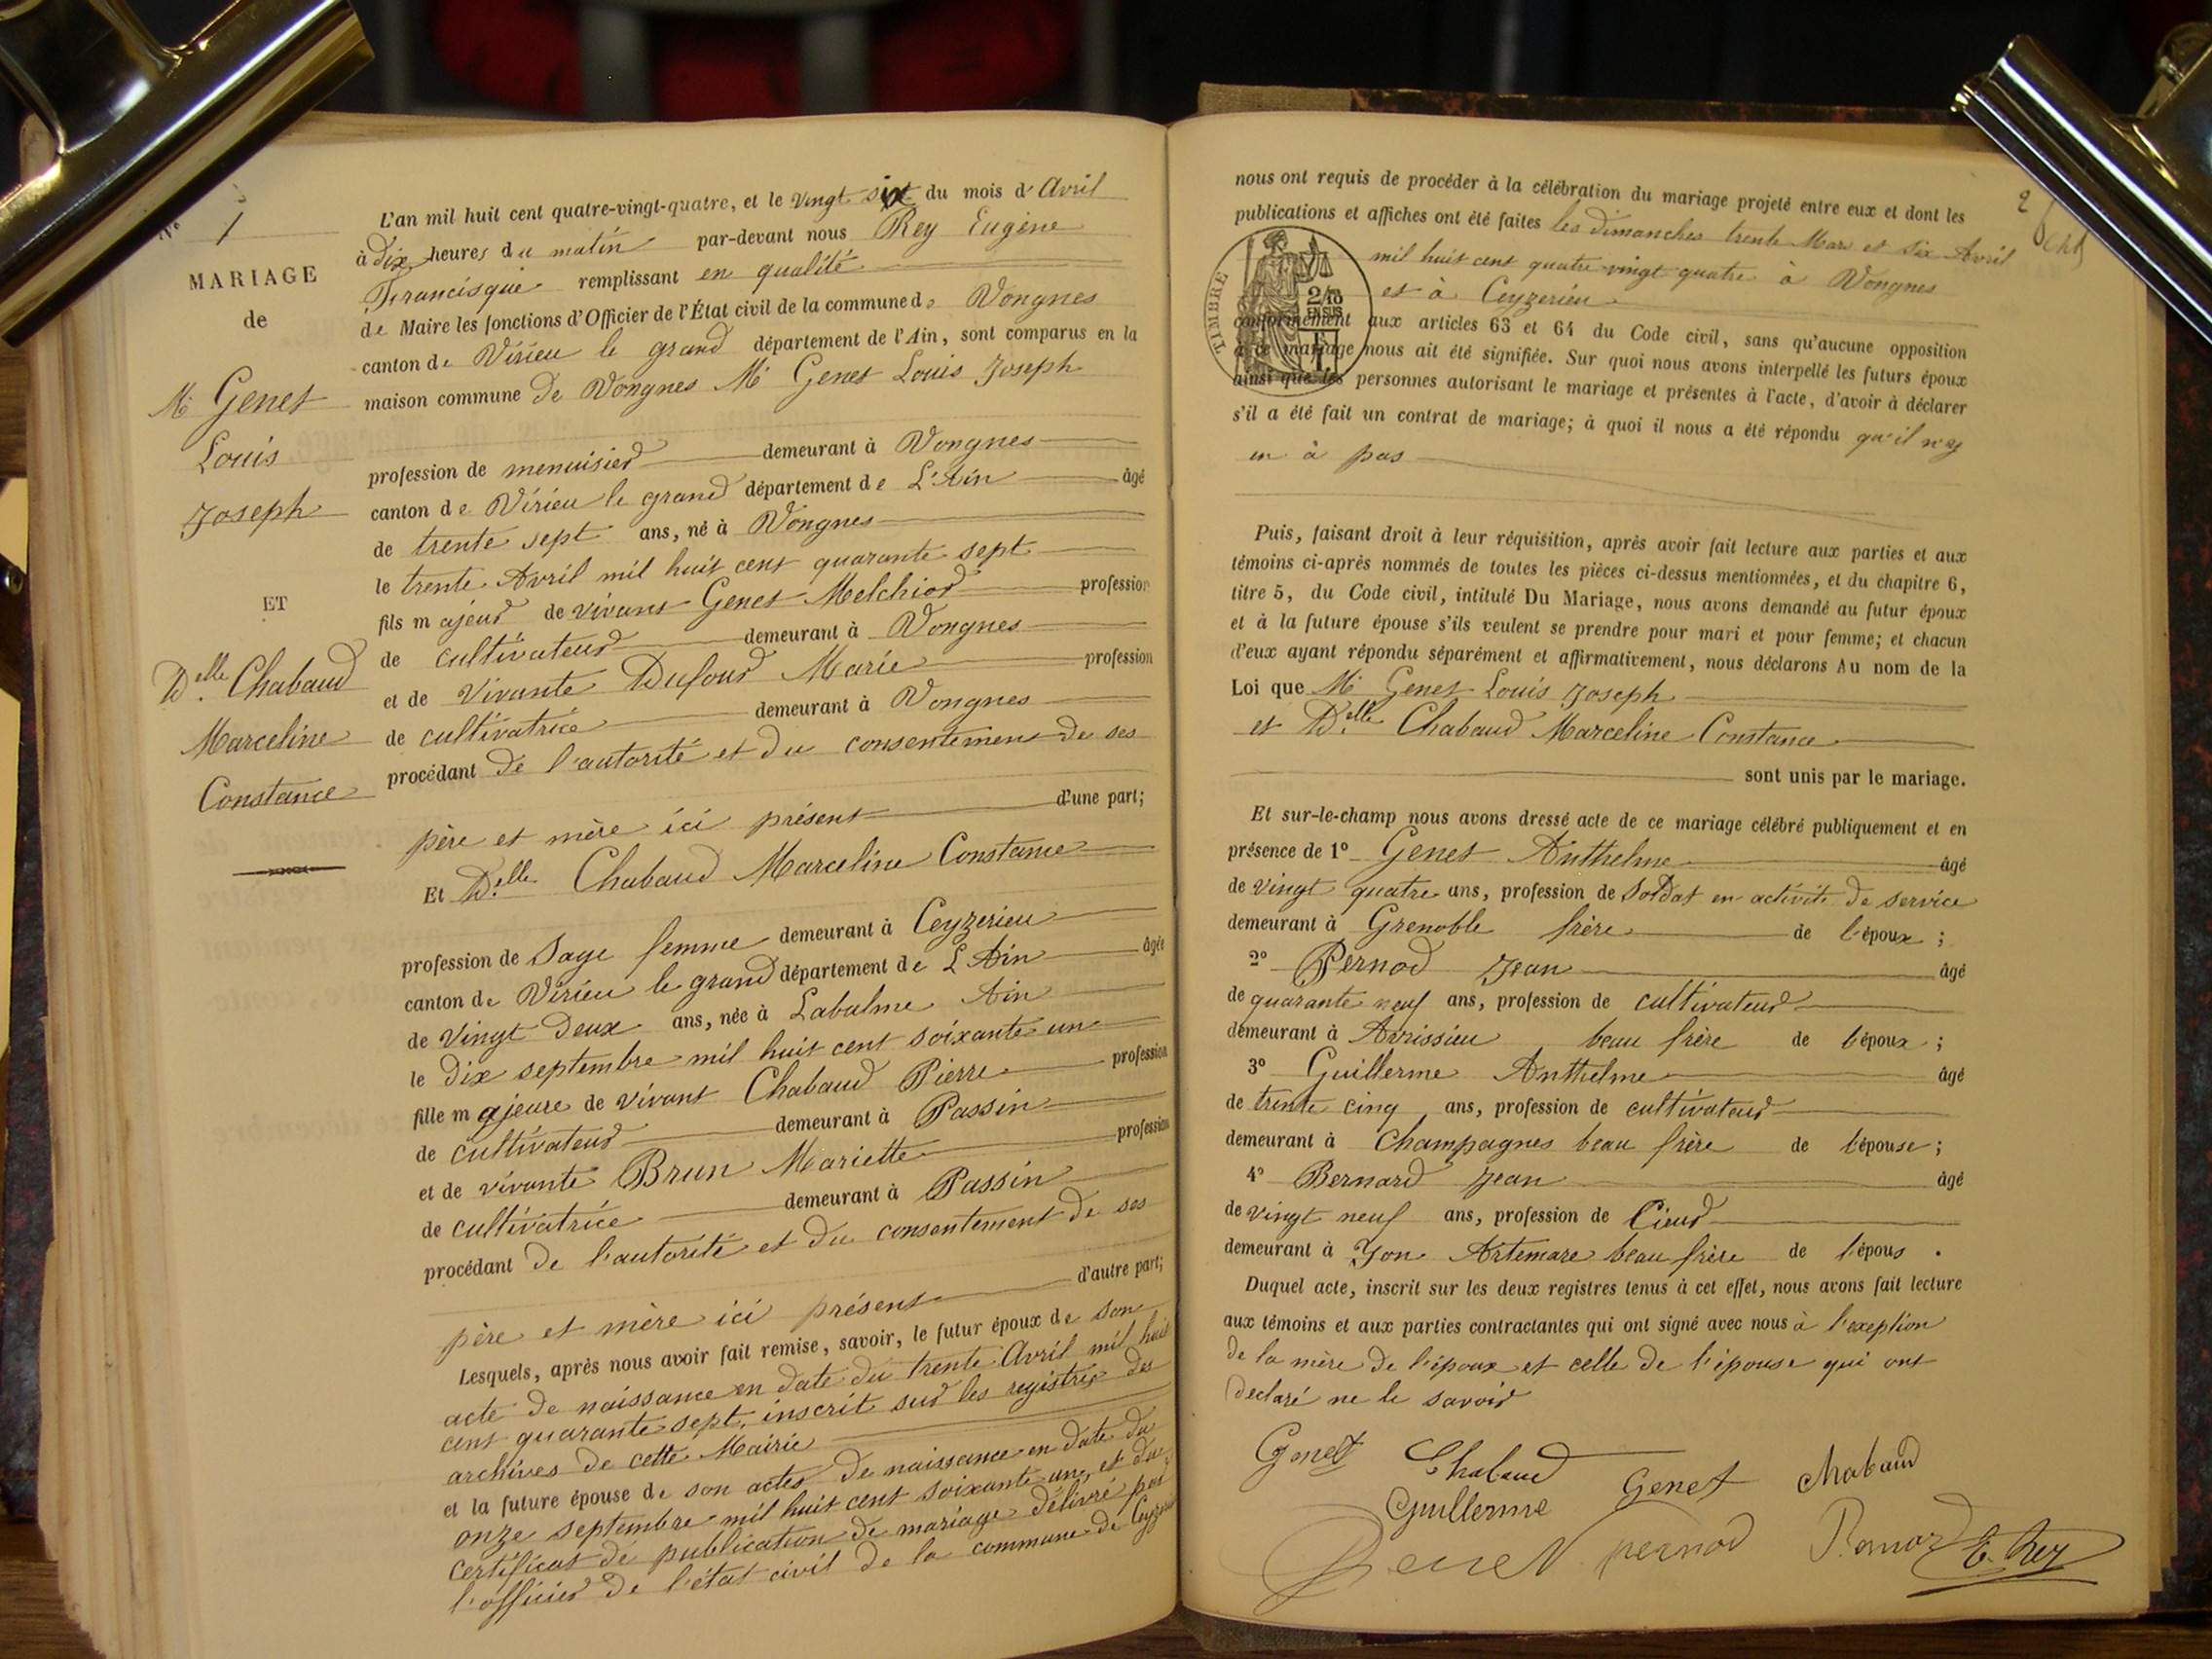 N° 1
MARIAGE
de
Mr Genet
Louis
Joseph
ET
Delle Chabaud
Marceline
Constance
L'an mil huit cent quatre-vingt-quatre, et le vingt six du mois d'Avril
à dix heures du matin par-devant nous Rey Eugène
Francisque remplissant en qualité
de Maire les fonctions d'Officier de l'État civil de la commune de Vongnes
canton de Virieu le grand département de l'Ain, sont comparus en la
maison commune de Vongnes Mr Genet Louis Joseph
profession de menuisier demeurant à Vongnes
canton de Virieu le grand département de L'Ain âgé
de trente sept ans, né à Vongnes
le trente Avril mil huit cent quarante sept
fils majeur de vivant Genet Melchior profession
de cultivateur demeurant à Vongnes
et de vivante Dufour Marie profession
de cultivatrice demeurant à Vongnes
procédant de l'autorité et du consentement de ses
père et mère ici présent d'une part;
Et Delle Chabaud Marceline Constance
profession de Sage femme demeurant à Ceyzerieu
canton de Virieu le grand département de L'Ain âgée
de vingt deux ans, née à Labalme Ain
le dix septembre mil huit cent soixante un
fille majeure de vivant Chabaud Pierre profession
de cultivateur demeurant à Passin
et de vivante Brun Mariette profession
de cultivatrice demeurant à Passin
procédant de l'autorité et du consentement de ses
père et mère ici présent d'autre part;
Lesquels, après nous avoir fait remise, savoir, le futur époux de son
acte de naissance en date du trente Avril mil huit
cent quarante sept, inscrit sur les registres des
archives de cette Mairie
et la future épouse de son actes de naissance en date du
onze septembre mil huit cent soixante un, et du
certificat de publication de mariage délivré par
l'officier de l'état civil de la commune de Ceyzerieu
2
nous ont requis de procéder à la célébration du mariage projeté entre eux et dont les
publications et affiches ont été faites les dimanches trente Mars et six Avril
mil huit cent quatre vingt quatre à Vongnes
et à Ceyzerieu
TIMBRE
2/10
EN SUS
conformément aux articles 63 et 64 du Code civil, sans qu'aucune opposition
à ce mariage nous ait été signifiée. Sur quoi nous avons interpellé les futurs époux
ainsi que les personnes autorisant le mariage et présentes à l'acte, d'avoir à déclarer
s'il a été fait un contrat de mariage; à quoi il nous a été répondu qu'il n'y
en à pas
Puis, faisant droit à leur réquisition, après avoir fait lecture aux parties et aux
témoins ci-après nommés de toutes les pièces ci-dessus mentionnées, et du chapitre 6,
titre 5, du Code civil, intitulé Du Mariage, nous avons demandé au futur époux
et à la future épouse s'ils veulent se prendre pour mari et pour femme; et chacun
d'eux ayant répondu séparément et affirmativement, nous déclarons Au nom de la
Loi que Mr Genet Louis Joseph
et Delle Chabaud Marceline Constance
sont unis par le mariage.
Et sur-le-champ nous avons dressé acte de ce mariage célébré publiquement et en
présence de 1° Genet Anthelme âgé
de vingt quatre ans, profession de Soldat en activité de service
demeurant à Grenoble frère de l'époux ;
2° Pernod Jean âgé
de quarante neuf ans, profession de cultivateur
demeurant à Avrissieu beau frère de l'époux ;
3° Guillerme Anthelme âgé
de trente cinq ans, profession de cultivateur
demeurant à Champagnes beau frère de l'épouse ;
4° Bernard Jean âgé
de vingt neuf ans, profession de Cieur
demeurant à Yon Artemare beau frère de l'épous .
Duquel acte, inscrit sur les deux registres tenus à cet effet, nous avons fait lecture
aux témoins et aux parties contractantes qui ont signé avec nous à l'exeption
de la mère de l'époux et celle de l'épouse qui ont
déclaré ne le savoir
Genet Chabaud Genet Chabaud
Guillerme
Genet pernod Bernard E. Rey